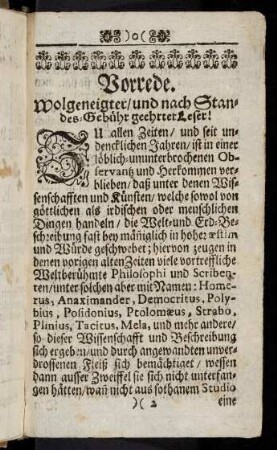 )o(
Vorrede.
Wolgeneigter/und nach Stan-
des-Gebühr geehrter Leser!
ZU allen Zeiten/ und seit un-
dencklichen Jahren/ ist in einer
löblich-ununterbrochenen Ob-
servantz und Herkommen ver-
blieben/ daß unter denen Wis-
senschafften und Künsten/ welche sowol von
göttlichen als irdischen oder menschlichen
Dingen handeln/ die Welt-und Erd-Be-
schreibung fast bey männiglich in hoher
und Würde geschwebet; hiervon zeugen in
denen vorigen alten Zeiten viele vortreffliche
Weltberühmte Philosophi und Scriben-
ten/unter solchen aber mit Namen: Home-
rus, Anaximander, Democritus, Poly-
bius, Posidonius, Ptolomæus, Strabo,
Plinius, Tacitus, Mela, und mehr andere/
so dieser Wissenschafft und Beschreibung
sich ergeben/und durch angewandten unver-
drossenen Fleiß sich bemächtiget/ wessen
dann ausser Zweiffel sie sich nicht unterfan-
gen hätten/ wañ nicht aus sothanem Studio
)( 2 eine